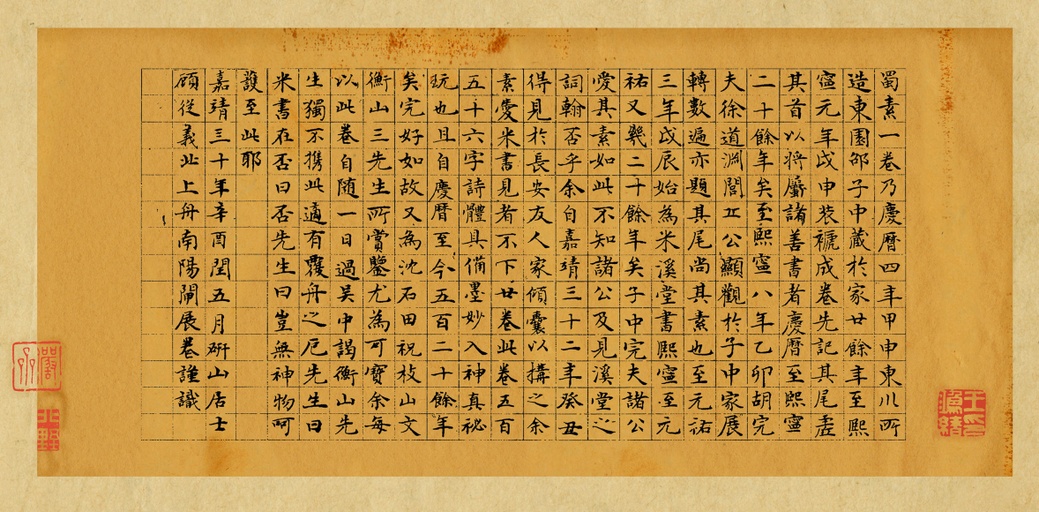 蜀素一卷乃慶曆四年甲申東川所
造東園邵子中藏於家廿餘年至熙
寧元年戊申裝褫成卷先記其尾虛
其首以將屬諸善書者慶曆至熙寧
二十餘年矣至熙寧八年乙卯胡完
夫徐道淵閭丘公顯觀於子中家展
轉數遍亦題其尾尚其素也至元祐
三年戊辰始為米溪堂書熙寧至元
祐又幾二十餘年矣子中完夫諸公
愛其素如此不知諸公及見溪堂之
詞翰否乎余自嘉靖三十二年癸丑
得見於長安友人家傾囊以搆之余
素愛米書見者不下廿卷此卷五百
五十六字詩體具備墨妙入神真秘
玩也且自慶曆至今五百二十餘年
矣完好如故又為沈石田祝枝山文
衡山三先生所賞鑒尤為可寶余每
以此卷自随一日過吴中謁衡山先
生獨不攜此適有覆舟之厄先生曰
米書在否曰否先生曰豈無神物呵
護至此耶
嘉靖三十年辛酉閏五月研山居士
顧從義北上舟南陽閘展卷謹識